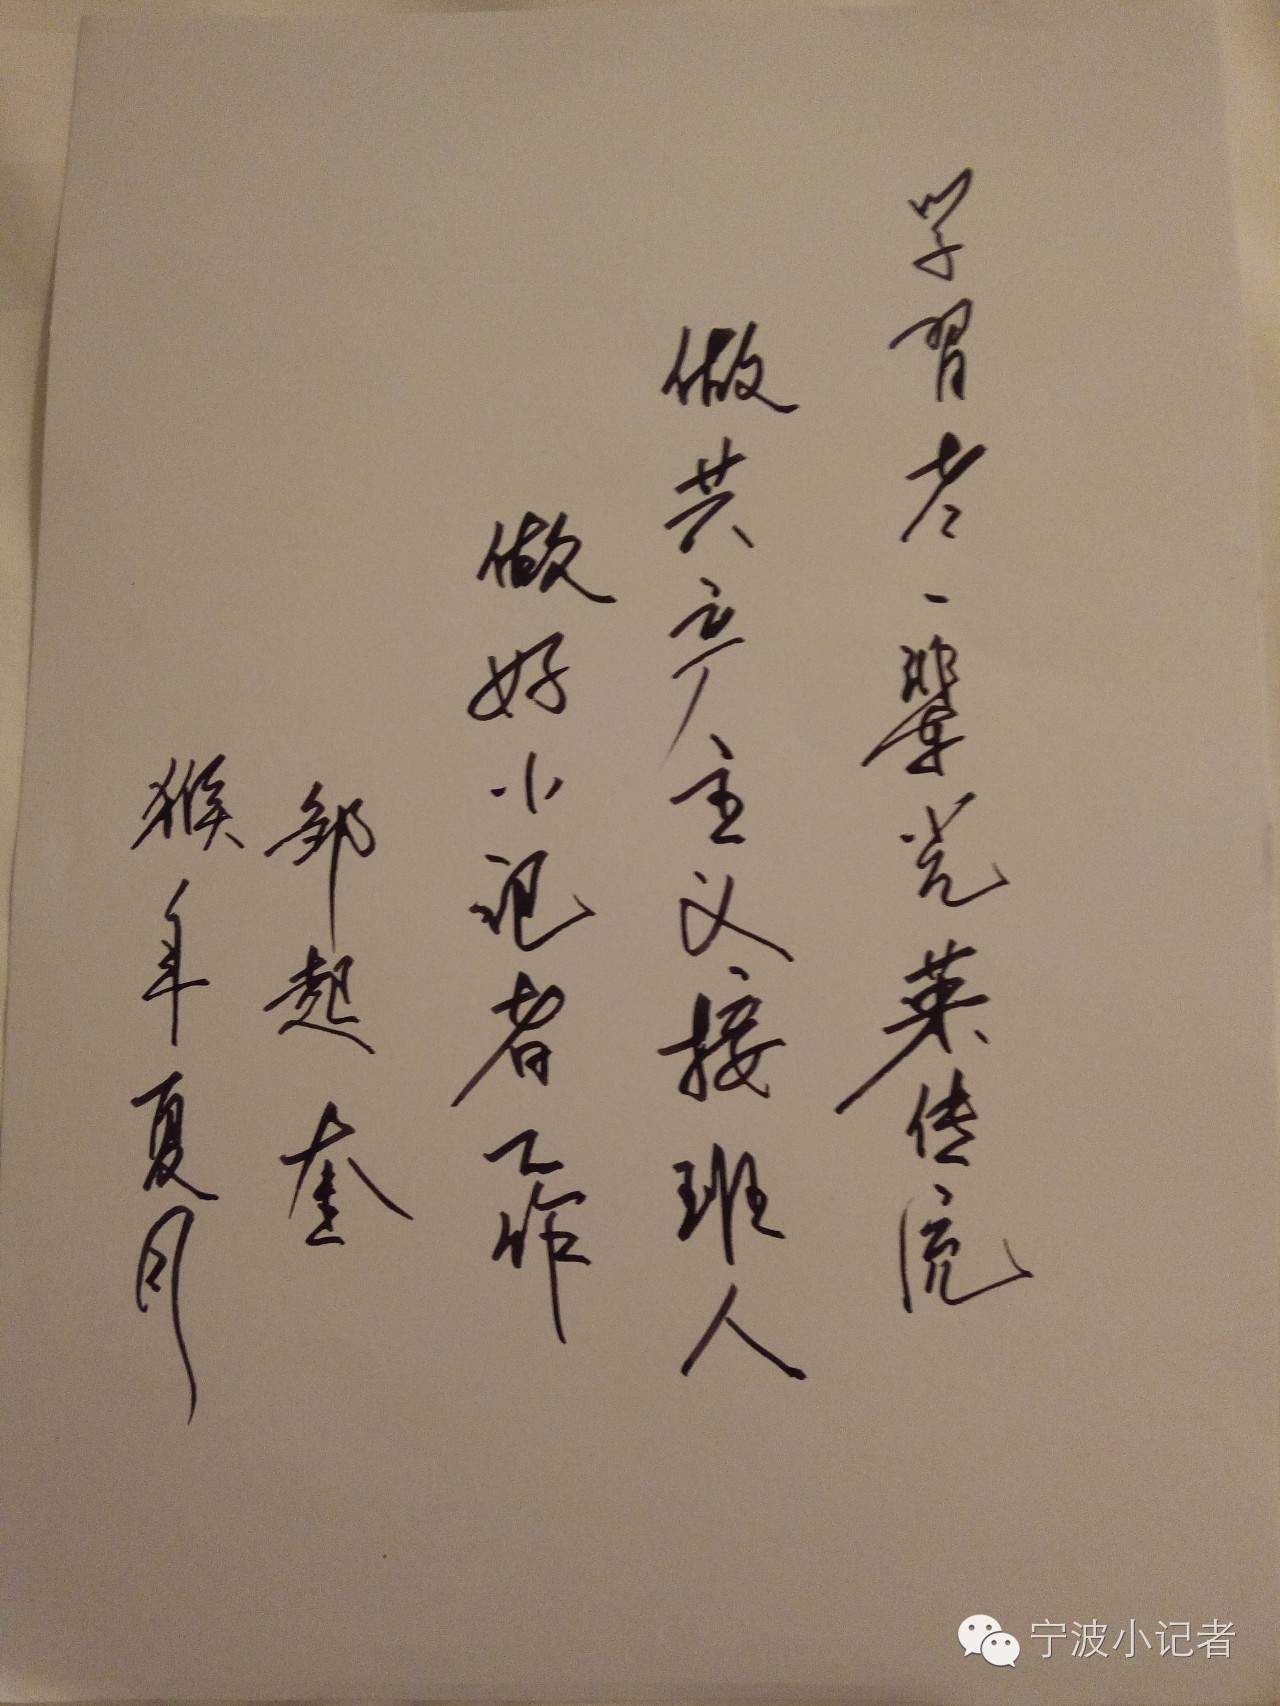 学習老一辈光荣传统
做共产主义接班人
做好小记者工作
邹起奎
猴年夏月
宁波小记者